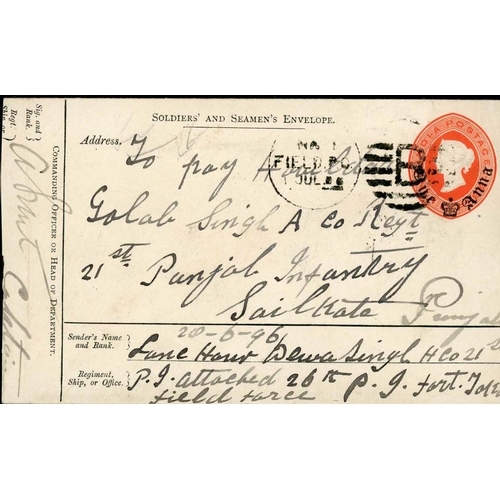 SOLDIERS' AND SEAMEN'S ENVELOPE.
INDIA POSTAGE
One Anna
No. 1
FIELD P.O.
1 JUL
B
Address.
To pay Havildar
Golab Singh A Co Regt
21st Punjab Infantry
Sailkote
Punjab
Sender's Name and Rank.
20-6-96
Lance Havr Dewa Singh H Co 21st
Regiment, Ship, or Office.
P. I. attached 26th P. I. Fort.
Field Force
Sig. and Rank.
Regt. Ship or
Captain
COMMANDING OFFICER OR HEAD OF DEPARTMENT.